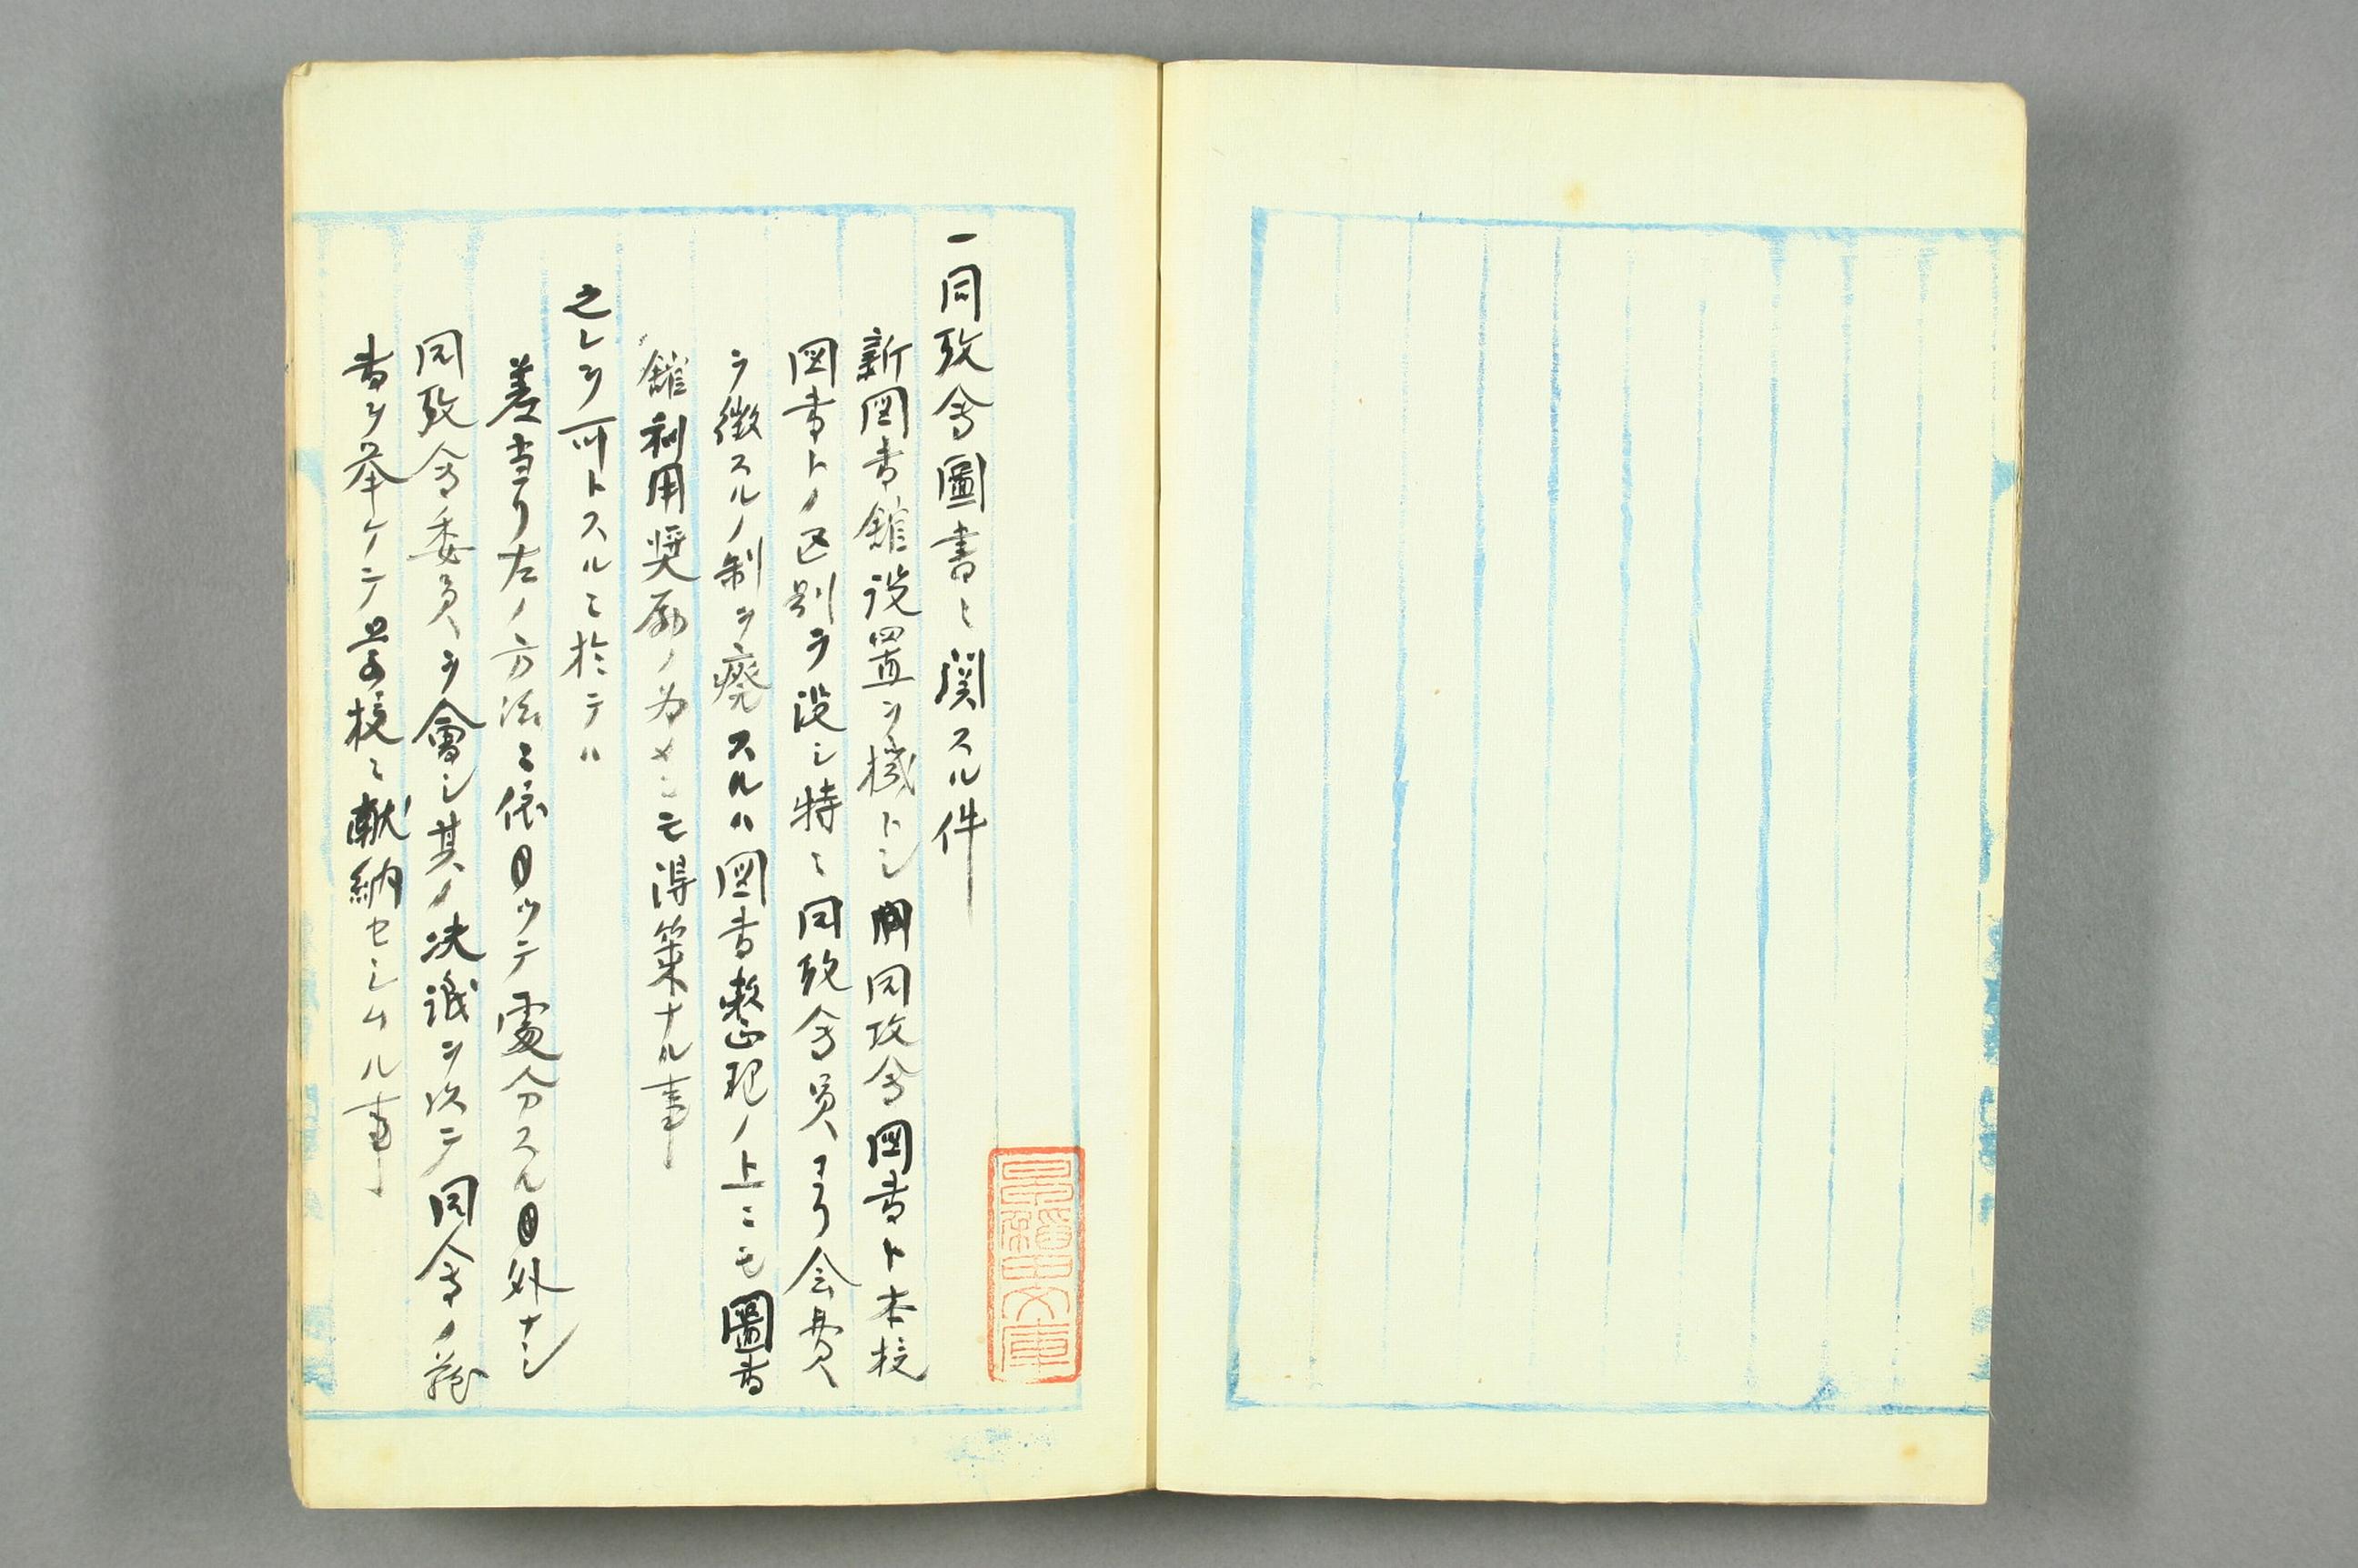 一同攻会圖書ニ関スル件
新図書館設置ヲ機トシ同攻会図書ト本校
図書トノ区別ヲ設シ特ニ同攻会員ヨリ会費
ヲ徴スルノ制ヲ廃スルハ図書整理ノ上ニモ圖書
館利用奨励ノ為メニモ得策ナル事
之レヲ可トスルニ於テハ
差当リ左ノ方法ニ依ッテ處分スル外ナシ
同攻会委員ヲ會シ其ノ決議ヲ以テ同会ノ蔵
書ヲ挙ケテ学校ニ献納セシムル事